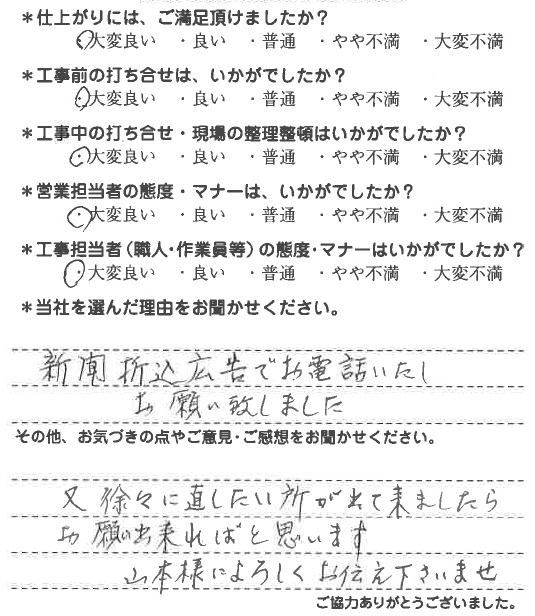 *仕上がりには、ご満足頂けましたか?
・大変良い ・良い ・普通 ・やや不満 ・大変不満
*工事前の打ち合せは、いかがでしたか?
・大変良い ・良い ・普通 ・やや不満 ・大変不満
*工事中の打ち合せ・現場の整理整頓はいかがでしたか?
・大変良い ・良い ・普通 ・やや不満 ・大変不満
*営業担当者の態度・マナーは、いかがでしたか?
・大変良い ・良い ・普通 ・やや不満 ・大変不満
*工事担当者(職人・作業員等)の態度・マナーはいかがでしたか?
・大変良い ・良い ・普通 ・やや不満 ・大変不満
*当社を選んだ理由をお聞かせください。
新聞折込広告でお電話いたし
お願い致しました
その他、お気づきの点やご意見・ご感想をお聞かせください。
又徐々に直したい所が出て来ましたら
お願い出来ればと思います
山本様によろしくお伝え下さいませ
ご協力ありがとうございました。